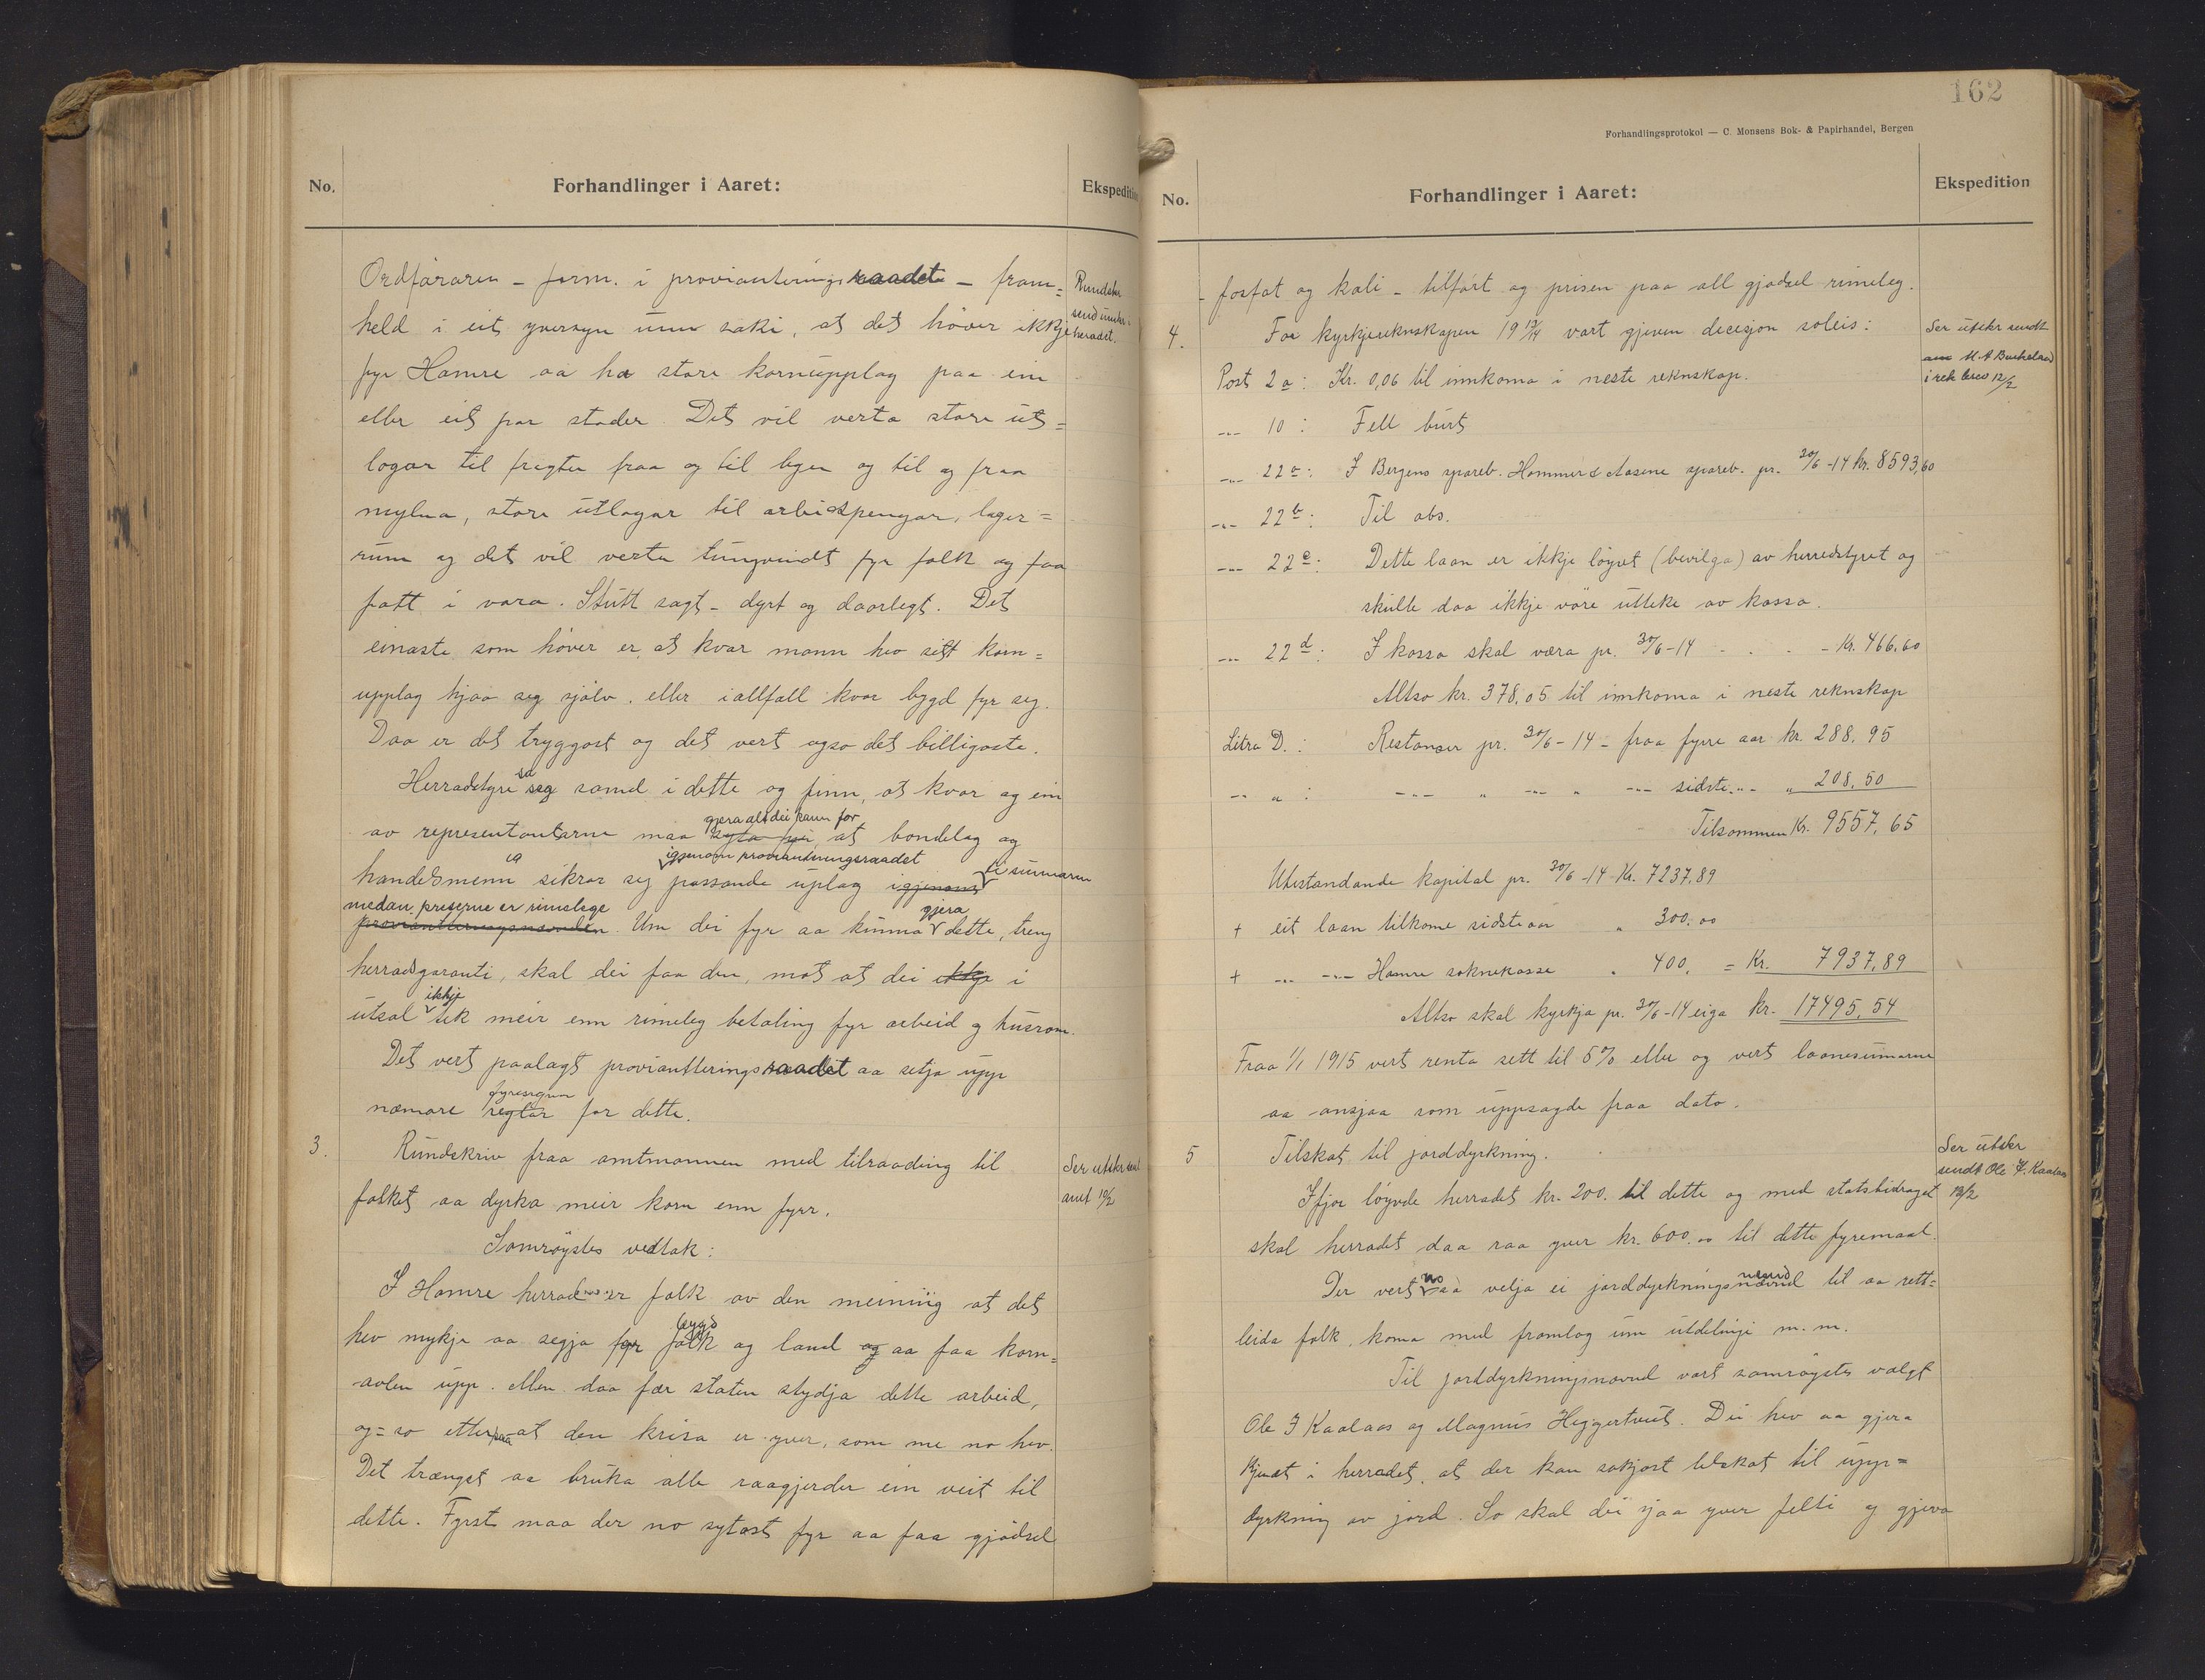 No.
Forhandlinger i Aaret:
Ekspedition
Ordføraren - form. i provianteringsraadet - fram=
held i eit yversyn umm saki, at det høver ikkje
fyr Hamre aa ha store kornupplag paa ein
eller eit par stader. Det vil verta store ut=
logar til fragter fraa og til byen og til og fraa
mylna, store utlagar til arbeidspengar, lager=
rum og det vil verta tungvindt fyr folk og faa
fatt i vara. Stutt sagt - dyrt og daarlegt. Det
einaste som høver er, at kvar mann hev sitt korn=
upplag hjaa seg sjølv, eller iallfall kvar bygd fyr seg.
Daa er det tryggast og det vert ogso det billigaste.
Herradstyre sa seg samd i dette og finn, at kvar og ein
av representantarne maa gjera alt dei kann for at bondelag og
handelsmenn sikrar seg igjenom provianteringsraadet passande uplag i sumaren
medan priserne er rimelege. Um dei fyr aa kunna gjera dette, treng
herradsgaranti, skal dei faa den, mot at dei ikkje i
utsal ikkje tek meir enn rimeleg betaling fyr arbeid og husrom.
Det vert paalagt provianteringsraadet aa setja upp
næmare reglar for dette.
Rundskr
send innker
heradet.
3.
Rundskriv fraa amtmannen med tilraading til
folket aa dyrka meir korn enn fyrr.
Ser utskr send
amt 10/2
Samrøystes vedtak:
I Hamre herrad er folk av den meining at det
hev mykje aa segja fyr bygd og land aa faa korn=
avlen upp. Men daa fær staten stydja dette arbeid,
og=so etterpaa at den krisa er yver, som me no hev.
Det trængst aa bruka alle raagjerder ein veit til
dette. Fyrst maa der no sytast fyr aa faa gjødsel
162
Forhandlingsprotokol — C. Monsens Bok- & Papirhandel, Bergen
No.
Forhandlinger i Aaret:
Ekspedition
- fosfat og kali - tilført og prisen paa all gjødsel rimeleg.
4.
For kyrkjerekneskapen 19 13/14 vart gjeven decisjon soleis:
Ser utskr sendt
M A Burkeland
i rek brev 12/2
Post 2 a: Kr. 0,06 til innkoma i neste reknskap.
-"- 10: Fell burt
-"- 22 a: I Bergens spareb. Hammer & Aasene spareb. pr. 30/6-14 kr. 8593,60
-"- 22 b: Til obs.
-"- 22 c: Dette laan er ikkje løyvet (bevilga) av herredstyret og
skulle daa ikkje være utteke av kassa.
-"- 22 d: I kassa skal væra pr. 30/6-14 - - - - Kr. 466.60
Altso kr. 378,05 til innkoma i neste reknskap
Litra D.: Restanser pr. 30/6-14 - fraa fyrre aar kr. 288,95
-"- " : -"- " -"- " -"- sidste -"- " 208,50
Tilsammen Kr. 9557,65
Utestandande kapital pr. 30/6-14 Kr. 7237,89
+ eit laan tilkome sidste aar " 300.00
+ -"- -"- Hamre soknekasse " 400. = Kr. 7937,89
Altso skal kyrkja pr. 30/6-14 eiga kr. 17495,54
Fraa 1/1 1915 vert renta sett til 5% eller og vert laanesumarne
aa ansjaa som uppsagde fraa dato.
5
Tilskot til jorddyrkning.
Ser utskr
sendt Ole J. Kaalaas
12/2
Ifjor løyvde herradet kr. 200. til dette og med statsbidraget
skal herradet daa raa yver kr. 600.00 til dette fyremaal.
Der vert no aa velja ei jorddyrkningsnemnd til aa rett=
leida folk, koma med framlag um utdelingi m.m.
Til jorddyrkningsnevnd vart samrøystes valgt
Ole J Kaalaas og Magnus Heggertveit. Dei hev aa gjera
kjendt i herradet, at der kan søkjast tilskot til upp=
dyrkning av jord. So skal dei sjaa yver felti og gjeva